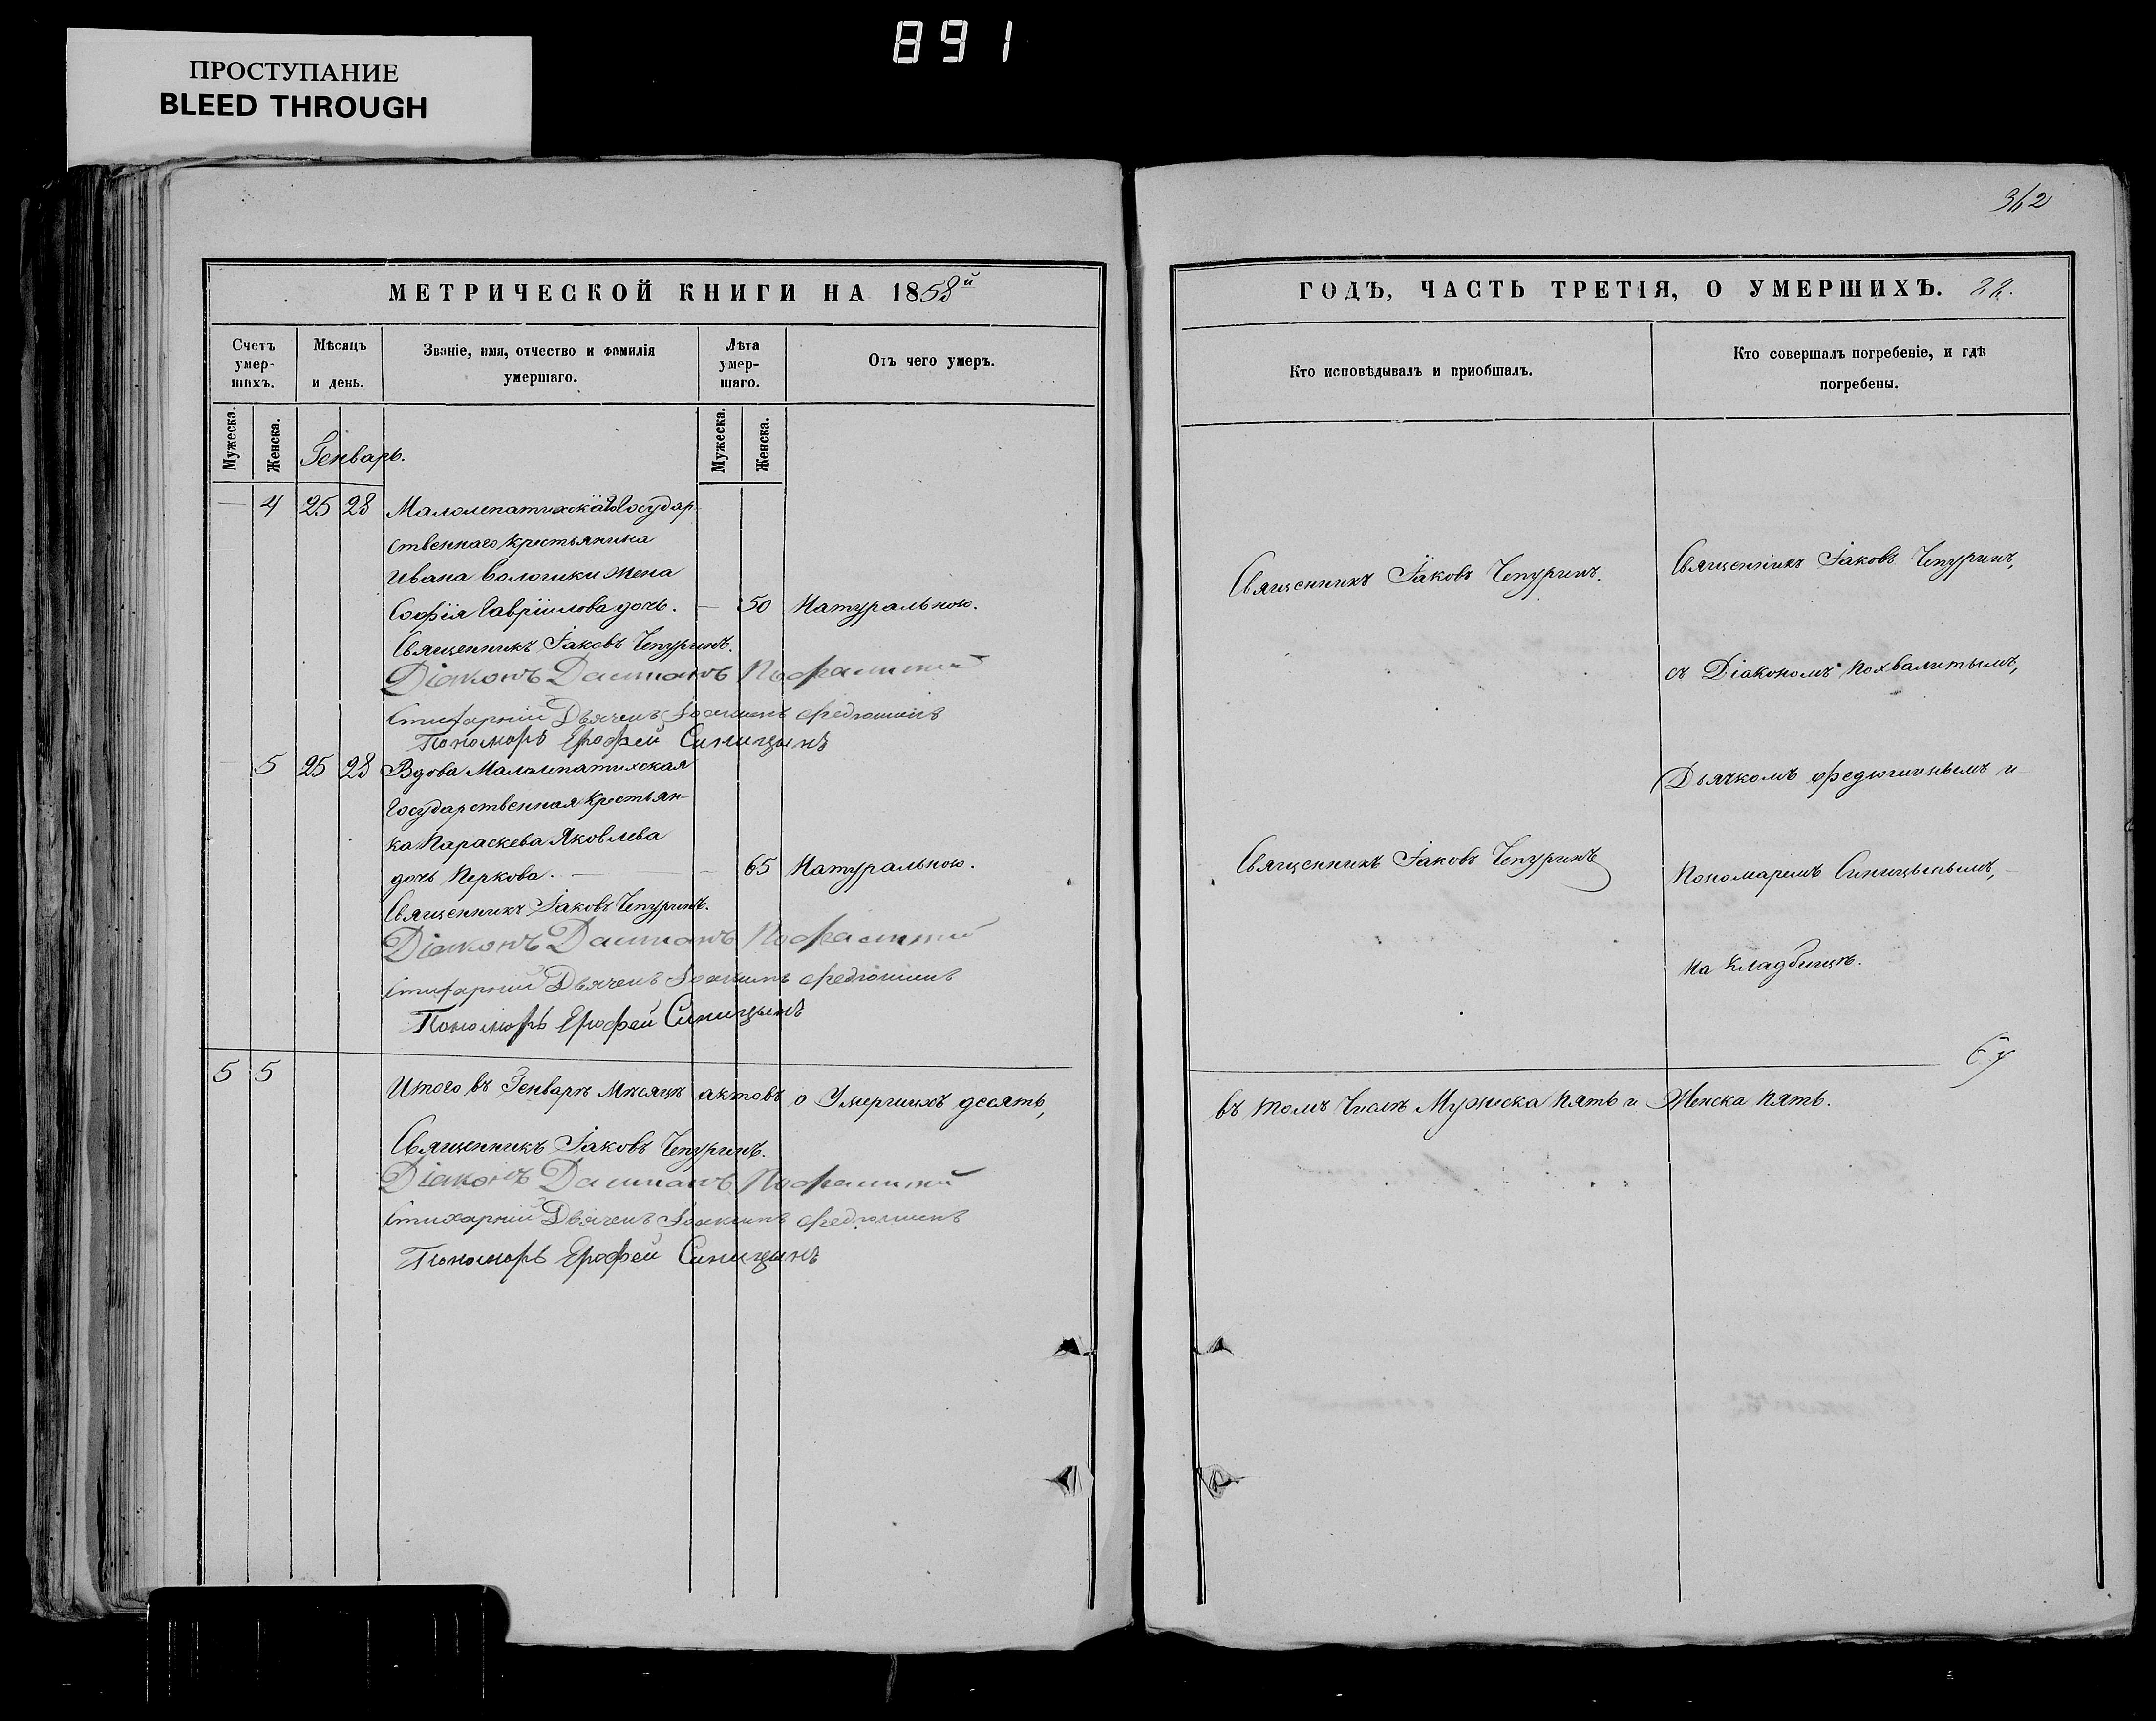 891
ПРОСТУПАНИЕ
BLEED THROUGH
362
МЕТРИЧЕСКОЙ КНИГИ НА 1858й
Счетъ умер-шихъ.
Мѣсяцъ и день.
Званіе, имя, отчество и фамилія умершаго.
Лѣта умер-шаго.
Отъ чего умеръ.
Мужеска.
Женска.
Генварь.
Мужеска.
Женска.
4 25 28 Малолепатихскаго Государ
ственнаго крестьянина
Ивана Вологики жена
Софія Гавріилова дочь. — 50 Натуральною.
Священникъ Іаковъ Чепуринъ.
Діаконъ Даміанъ
Стихарный Дьячекъ Іоакимъ Федюшинъ
Пономарь Ерофей Синицынъ
5 25 28 Вдова Малолепатихская
Государственная крестьян-
ка Параскева Яковлева
дочь Перкова. — 65 Натуральною.
Священникъ Іаковъ Чепуринъ.
Діаконъ Даміанъ
Стихарный Дьячекъ Іоакимъ Федюшинъ
Пономарь Ерофей Синицынъ
5 5
Итого въ Генварѣ Мѣсяцѣ актовъ о Умершихъ десять,
Священникъ Іаковъ Чепуринъ.
Діаконъ Даміанъ
Стихарный Дьячекъ Іоакимъ Федюшинъ
Пономарь Ерофей Синицынъ
ГОДЪ, ЧАСТЬ ТРЕТІЯ, О УМЕРШИХЪ. 22.
Кто исповѣдывалъ и пріобщалъ.
Кто совершалъ погребеніе, и гдѣ погребены.
Священникъ Іаковъ Чепуринъ.
Священникъ Іаковъ Чепуринъ,
съ Діакономъ Похвалитымъ,
Дьячкомъ Федюшинымъ и
Священникъ Іаковъ Чепуринъ
Пономаремъ Синицынымъ,
на кладбищѣ.
въ томъ числѣ Мужеска пять и Женска пять.